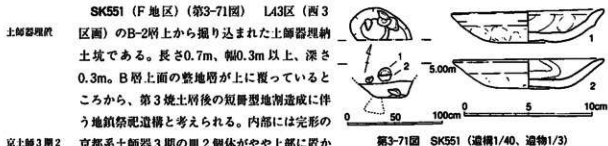 SK551（F地区）（第3-71図） L43区（西3
区画）のB-2層上から掘り込まれた土師器埋納
土坑である。長さ0.7m、幅0.3m以上、深さ
0.3m。B層上面の整地層が上に覆っていると
ころから、第3焼土層後の短冊型地割造成に伴
う地鎮祭祀遺構と考えられる。内部には完形の
京都系土師器3期の皿2個体がやや上部に置か
土師器埋置
京土師3期2
1
2
5.00m
0 50 100cm
1
2
0 5 10cm
第3-71図 SK551（遺構1/40、遺物1/3）